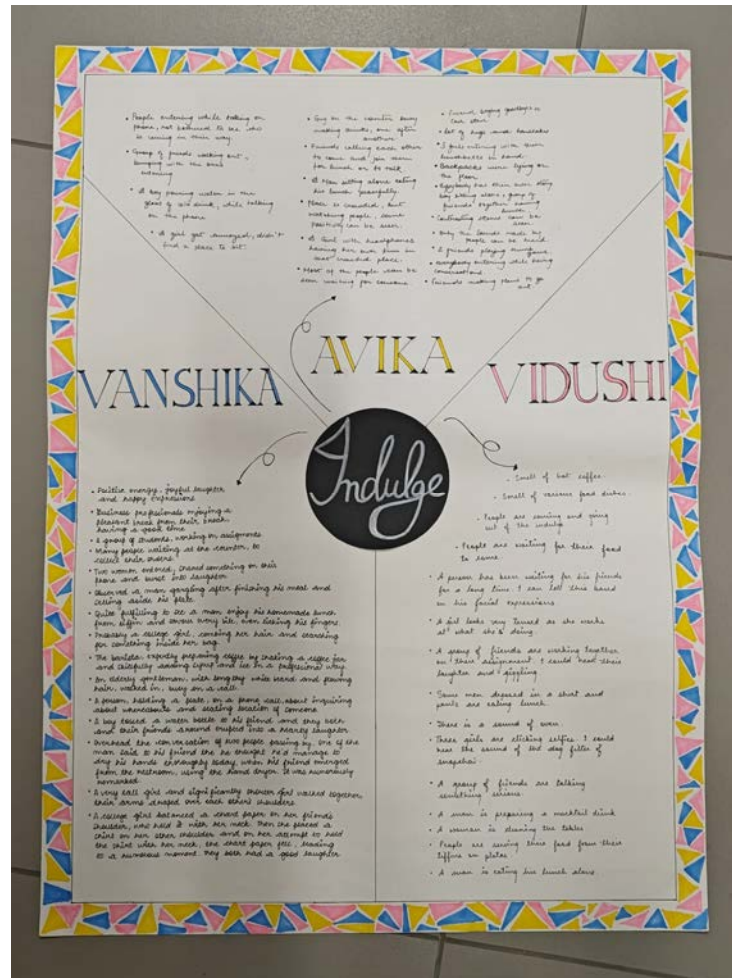 • People entering while talking on
phone, not bothered to see who
is coming in their way.
• Group of friends walking out,
bumping with the ones
entering
• A boy pouring water in the
glass of cold drink, while talking
on the phone
• A girl got annoyed, didn't
find a place to sit.
• Guy on the counter busy
making
one after
another
• Friends calling each other
to come and join them
for lunch or to talk
• A Man sitting alone eating
his lunch peacefully.
• Place is crowded, but
watching people, some
positivity can be seen.
• A Girl with headphones
having her own fun in
that crowded place.
• Most of the people can be
seen waiting for someone.
• Friends saying goodbye to
each other
• lot of hugs and handshakes
• 3 girls entering with own
in hand.
• Backpacks were lying on
the floor
• Everybody has their own story
boy sitting alone, group of
friends together having
lunch.
• Contrasting stories can be
seen.
• Only the sounds made by
people can be heard.
• friends playing game.
• everybody entering while having
conversations.
• Friends making plans to go
out.
AVIKA
VANSHIKA
VIDUSHI
Indulge
• Positive energy, joyful laughter
and happy expressions
• Business professionals enjoying a
pleasant break from their
having a good time
• A group of students, working on assignments
• Many people waiting at the counter, to
collect their orders
• Two women entered, shared something on their
phone and burst into laughter
• Observed a man gargling after finishing his meal and
setting aside his plate
• Quite fulfilling to see a man enjoy his homemade lunch
from tiffin and savour every bite, even licking his fingers.
• Probably a college girl, combing her hair and searching
for something inside her bag.
• The barista, expertly preparing coffee by shaking a coffee jar
and carefully adding syrup and ice in a professional way.
• An elderly gentleman, with long white beard and flowing
hair, walked in, busy on a call.
• A person, holding a plate, on a phone call, about inquiring
about whereabouts and seating location of someone
• A boy tossed a water bottle to his friend and they both
and their friends around erupted into a hearty laughter
• Overheard the conversation of two people passing by, one of the
man said to his friend the he thought he'd manage to
dry his hands thoroughly today, when his friend emerged
from the restroom, using the hand dryer. It was humorously
remarked.
• A very tall girl and significantly shorter girl walked together
their arms draped over each other's shoulders
• A college girl balanced a chart paper on her friend's
shoulder, who held it with her neck. Then she placed a
chart on her other shoulder and on her attempt to hold
the chart with her neck, the chart paper fell, leading
to a humorous moment. They both had a good laughter
- Smell of hot coffee.
- Smell of various food dishes.
- People are coming and going
out of the indulge
- People are waiting for their food
to come.
• A person has been waiting for his friends
for a long time. I can tell this based
on his facial expressions
• A girl looks very tensed as she works
at what she's doing.
• A group of friends are working together
on their assignment. I could hear their
laughter and giggling.
• Some men dressed in a shirt and
pants are eating lunch.
• There is a sound of oven.
• Three girls are clicking selfies. I could
hear the sound of the dog filter of
snapchat.
• A group of friends are talking
something serious.
• A man is preparing a mocktail drink
• A woman is cleaning the tables
• People are serving their food from their
tiffins on plates
• A man is eating his lunch alone.